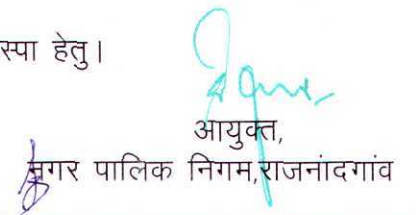 स्पा हेतु।
आयुक्त,
नगर पालिक निगम,राजनांदगांव